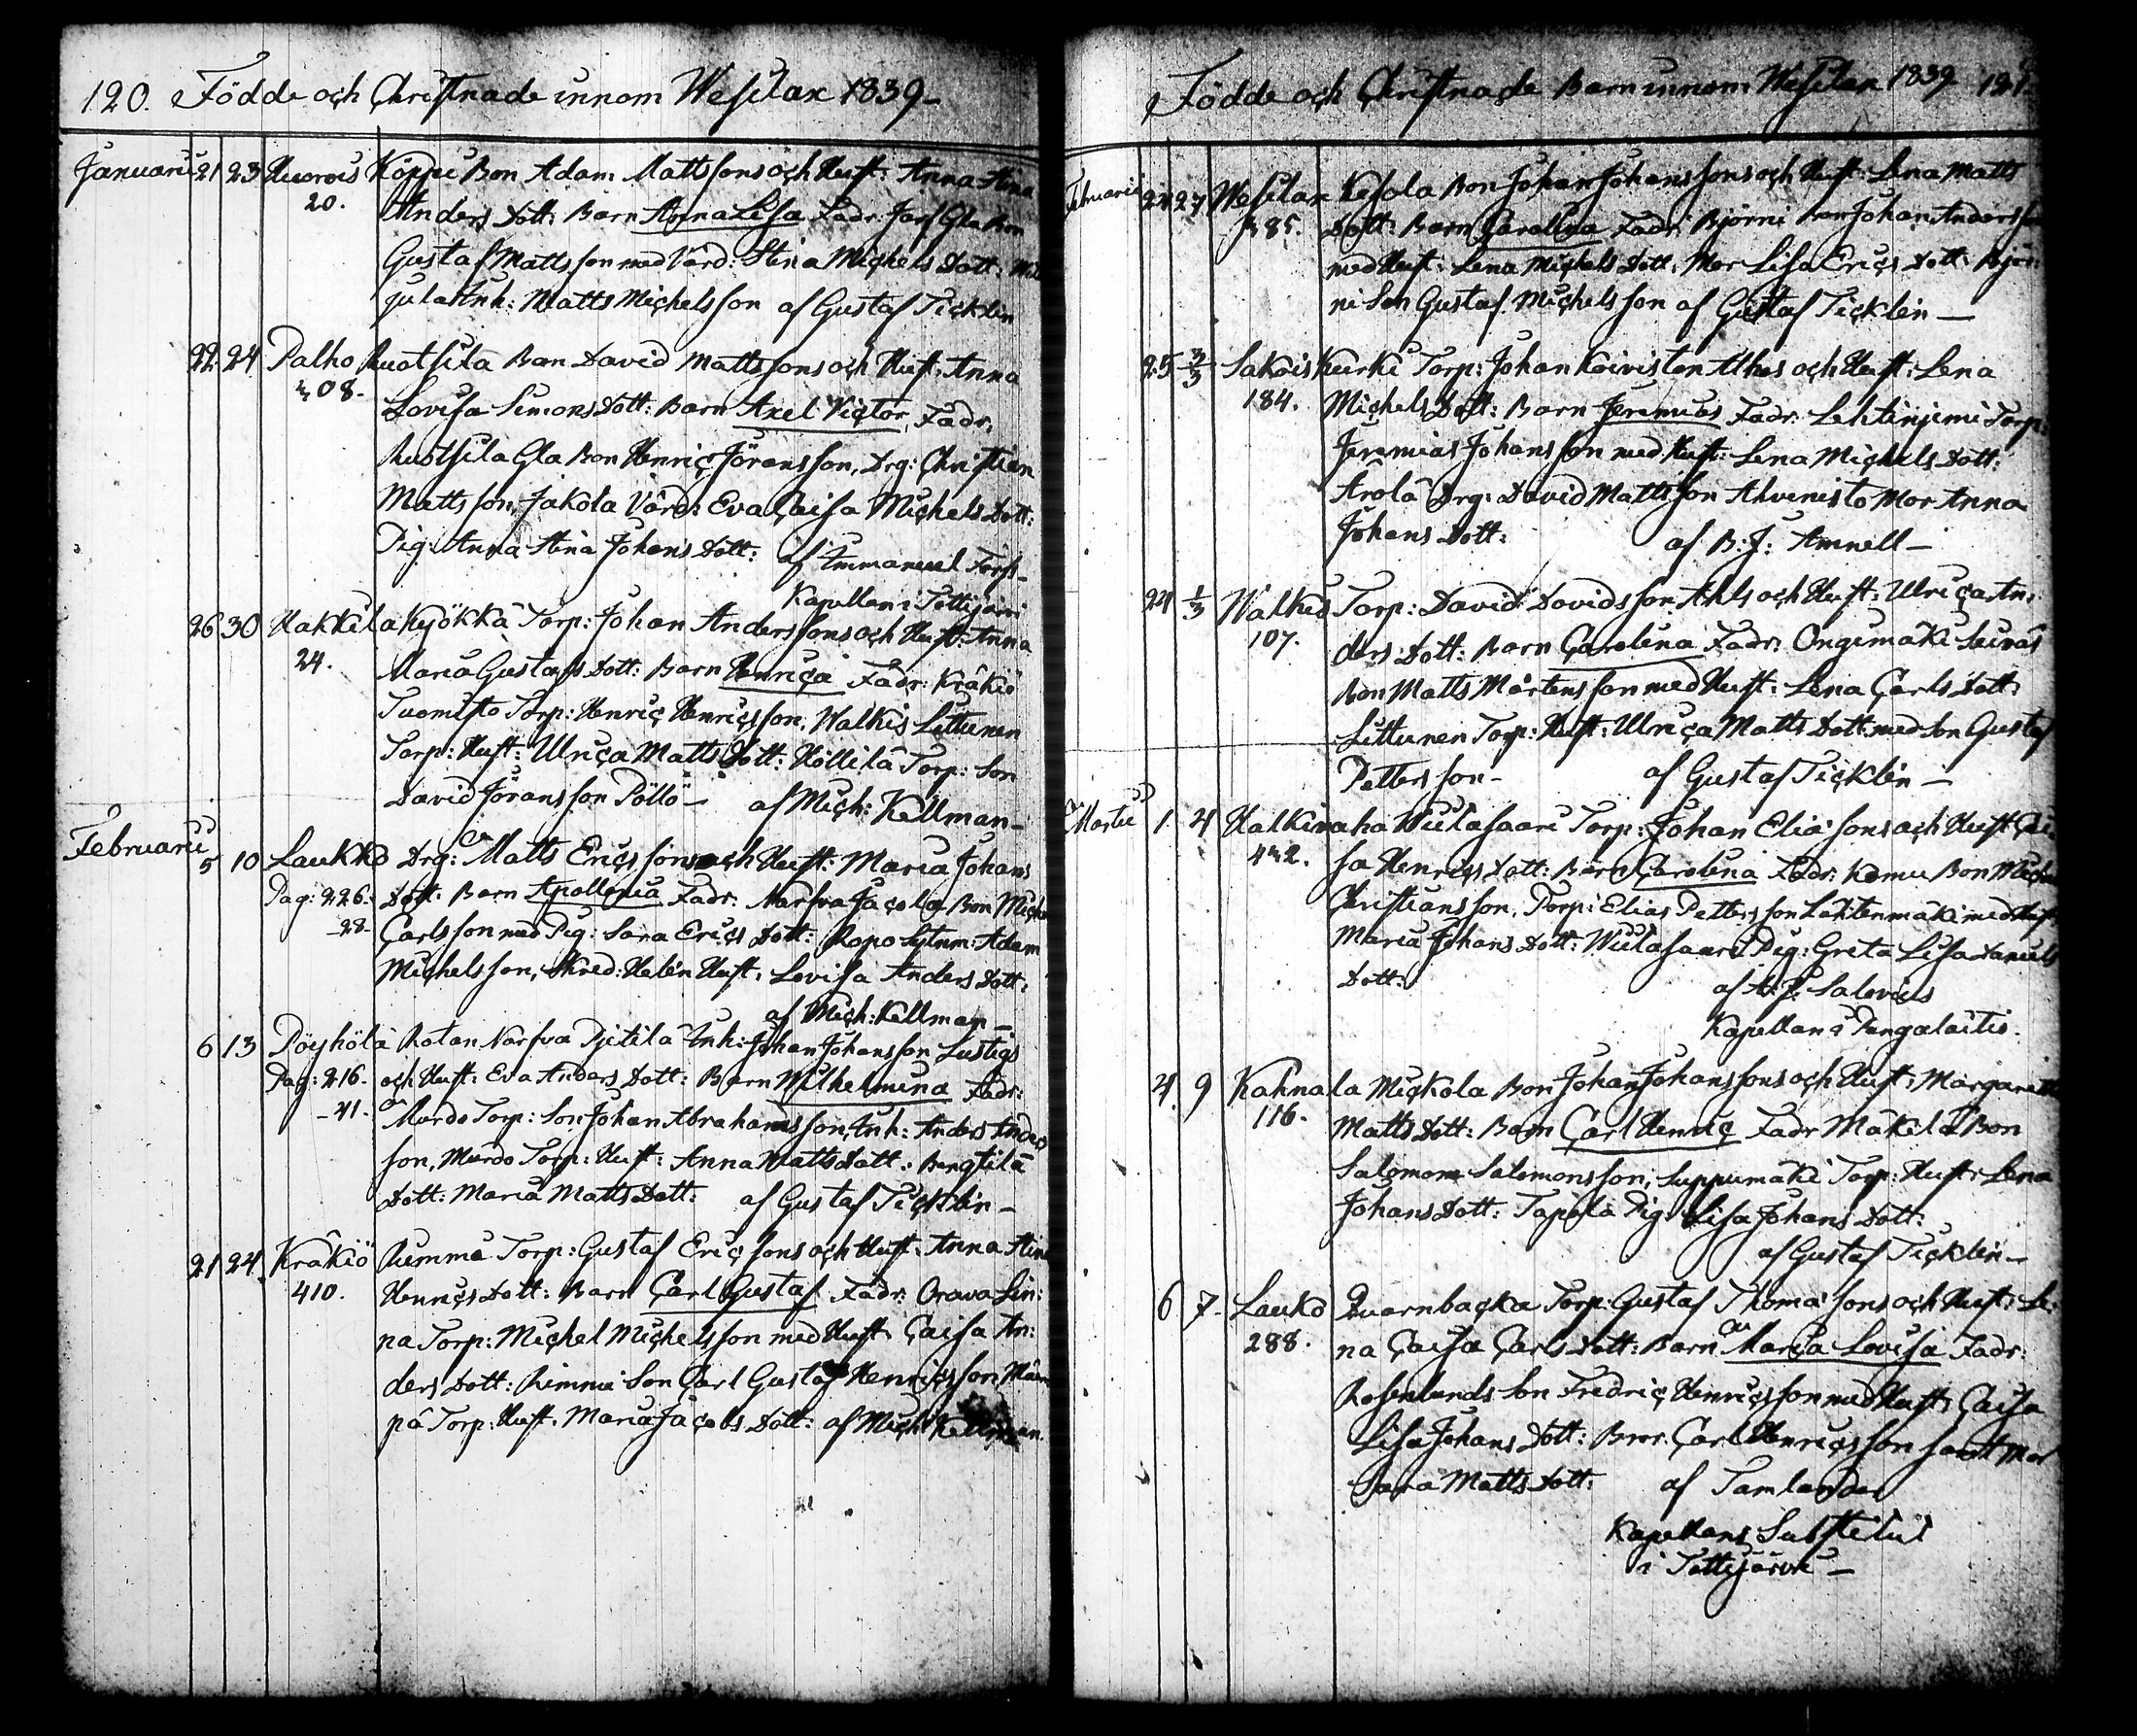 120. Födde och Christnade innom Wesilax 1839-
Januarii 21 23 Huorois Köppi Bon Adam Mattssons och Hust: Anna Stina
20. Anders Dott: Barn Anna Lisa Fadr: Gla Bon
Gustaf Matts son med Värd: Stina Michels Dott:
Inh: Matts Michelsson af Gustaf Ticklén
22. 24 Palho Ruotsila Bon David Mattssons och Hust: Anna
308. Lovisa Simons Dott: Barn Axel Victor, Fadr:
Ruotsila Gla Bon Henric Göransson, Drg: Christian
Mattsson, Jakola Värd: Eva Caisa Michels Dott:
Pig: Anna Stina Johans Dott: af Emmanuel Forss-
Kapellan i Tottijärvi
26 30 Hakkila Kyökkä Torp: Johan Anderssons och Hust: Anna
24. Maria Gustafs Dott: Barn Henrica Fadr: Kräkiö
Tuomisto Torp: Henric Henricsson, Walkis Littunen
Torp: Hust: Ulrica Matts Dott: Höllilä Torp: Son
David Göransson Pöllö- af Mich: Kellman-
Februarii 5 10 Laukko Drg: Matts Ericssons och Hust: Maria Johans
Pag: 226. Dott: Barn Apollonia Fadr: Narfva Jacola Bon Michel
-28- Carlsson med Pig: Sara Erics Dott: Ropo Sytnm: Adam
Michelsson, Skred: Helén Hust: Lovisa Anders Dott:
af Mich: Kellman-
6 13 Pöyhölä Rotan Narfva Pietilä Inh: Johan Johansson Lustigs
Pag: 216. och Hust: Eva Anders Dott: Barn Wilhelmina Fadr:
-41- Murdo Torp: Son Johan Abrahamsson, Inh: Anders Anders
son, Murdo Torp: Hust: Anna Matts Dott: Bengtilä
Dott: Maria Matts Dott: af Gustaf Ticklén-
21 24. Kräkiö Rimmi Torp: Gustaf Ericssons och Hust: Anna Stina
410. Henrics Dott: Barn Carl Gustaf Fadr: Orava Lin:
na Torp: Michel Michelsson med Hust: Caisa An:
ders Dott: Rimmi Son Carl Gustaf Henricsson
pä Torp: Hust: Maria Jacobs Dott: af Mich: Kellman.
Födde och Christnade Barn innom Wesilax 1839 121.
Februarii 24 27 Wesilax Kesola Bon Johan Johanssons och Hust: Lena Matts
385. Dott: Barn Carolina Fadr: Björni Bon Johan Andersson
med Hust: Lena Michels Dott: Mor Lisa Erics Dott: Björ:
ni Son Gustaf Michelsson af Gustaf Ticklén-
25 3/3 Sakois Kurki Torp: Johan Koivisten Alhos och Hust: Lena
184. Michels Dott: Barn Jeremias Fadr: Lehtinjemi Torp:
Jeremias Johansson med Hust: Lena Michels Dott:
Arola Drg: David Mattsson Ahvenisto Mor Anna
Johans Dott: af B: J: Amnell-
24 1/3 Walkis Torp: David Davidsson Ahls och Hust: Ulrica An:
107. ders Dott: Barn Carolina Fadr: Ongimäki Seuväs
Bon Matts Mårtensson med Hust: Lena Carls Dott:
Littunen Torp: Hust: Ulrica Matts Dott: med Son Gustaf
Pettersson- af Gustaf Ticklén-
Martii 1. 4 Halkivaha Wiilasaari Torp: Johan Eliæsons och Hust: Cai
432. sa Henrics Dott: Barn Carolina Fadr: Komu Bon Michel
Christiansson, Torp: Elias Pettersson Lähtenmäki med Hust
Maria Johans Dott: Wiilasaari Pig: Greta Lisa Daniels
Dott: af A: J: Salovius
Kapellan i Pungalaitio.
4. 9 Kahnala Mickola Bon Johan Johanssons och Hust: Margaretha
116. Matts Dott: Barn Carl Henric Fadr Mäkelä Bon
Salomon Salomonsson, Suppumäki Torp: Hust: Lena
Johans Dott: Tapola Pig: Lisa Johans Dott:
af Gustaf Ticklén-
6 7. Lauko Qvarnbacka Torp: Gustaf Thomæsons och Hust: Le:
288. na Caisa Carls Dott: Barn Maria Lovisa Fadr:
Rosenlunds Son Fredric Henricsson med Hust: Caisa
Lisa Johans Dott: Bror Carl Henricsson samt Mor
Sara Matts Dott: af Tamlander
Kapellans Substitut
i Tottijärvi-